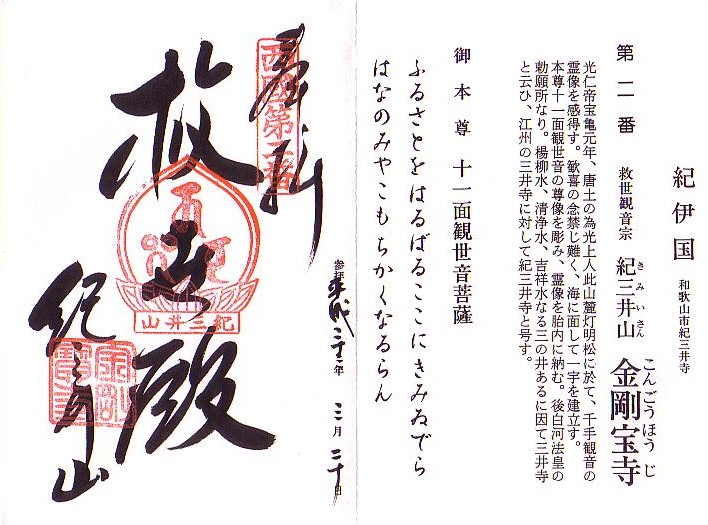 紀伊国 和歌山市紀三井寺
第二番 救世観音宗 紀三井山 金剛宝寺
きみいさん こんごうほうじ
光仁帝宝亀元年、唐土の為光上人此山麓灯明松に於て、千手観音の
霊像を感得す。歓喜の念禁じ難く、海に面して一宇を建立す。
本尊十一面観世音の尊像を彫み、霊像を胎内に納む。後白河法皇の
勅願所なり。楊柳水、清浄水、吉祥水なる三の井あるに因て三井寺
と云ひ、江州の三井寺に対して紀三井寺と号す。
御本尊 十一面観世音菩薩
ふるさとをはるばるここにきみゐでら
はなのみやこもちかくなるらん
参拝 平成二十二年 二月二十日
奉拝
西國第二番
救世殿
紀三井山
紀三井山